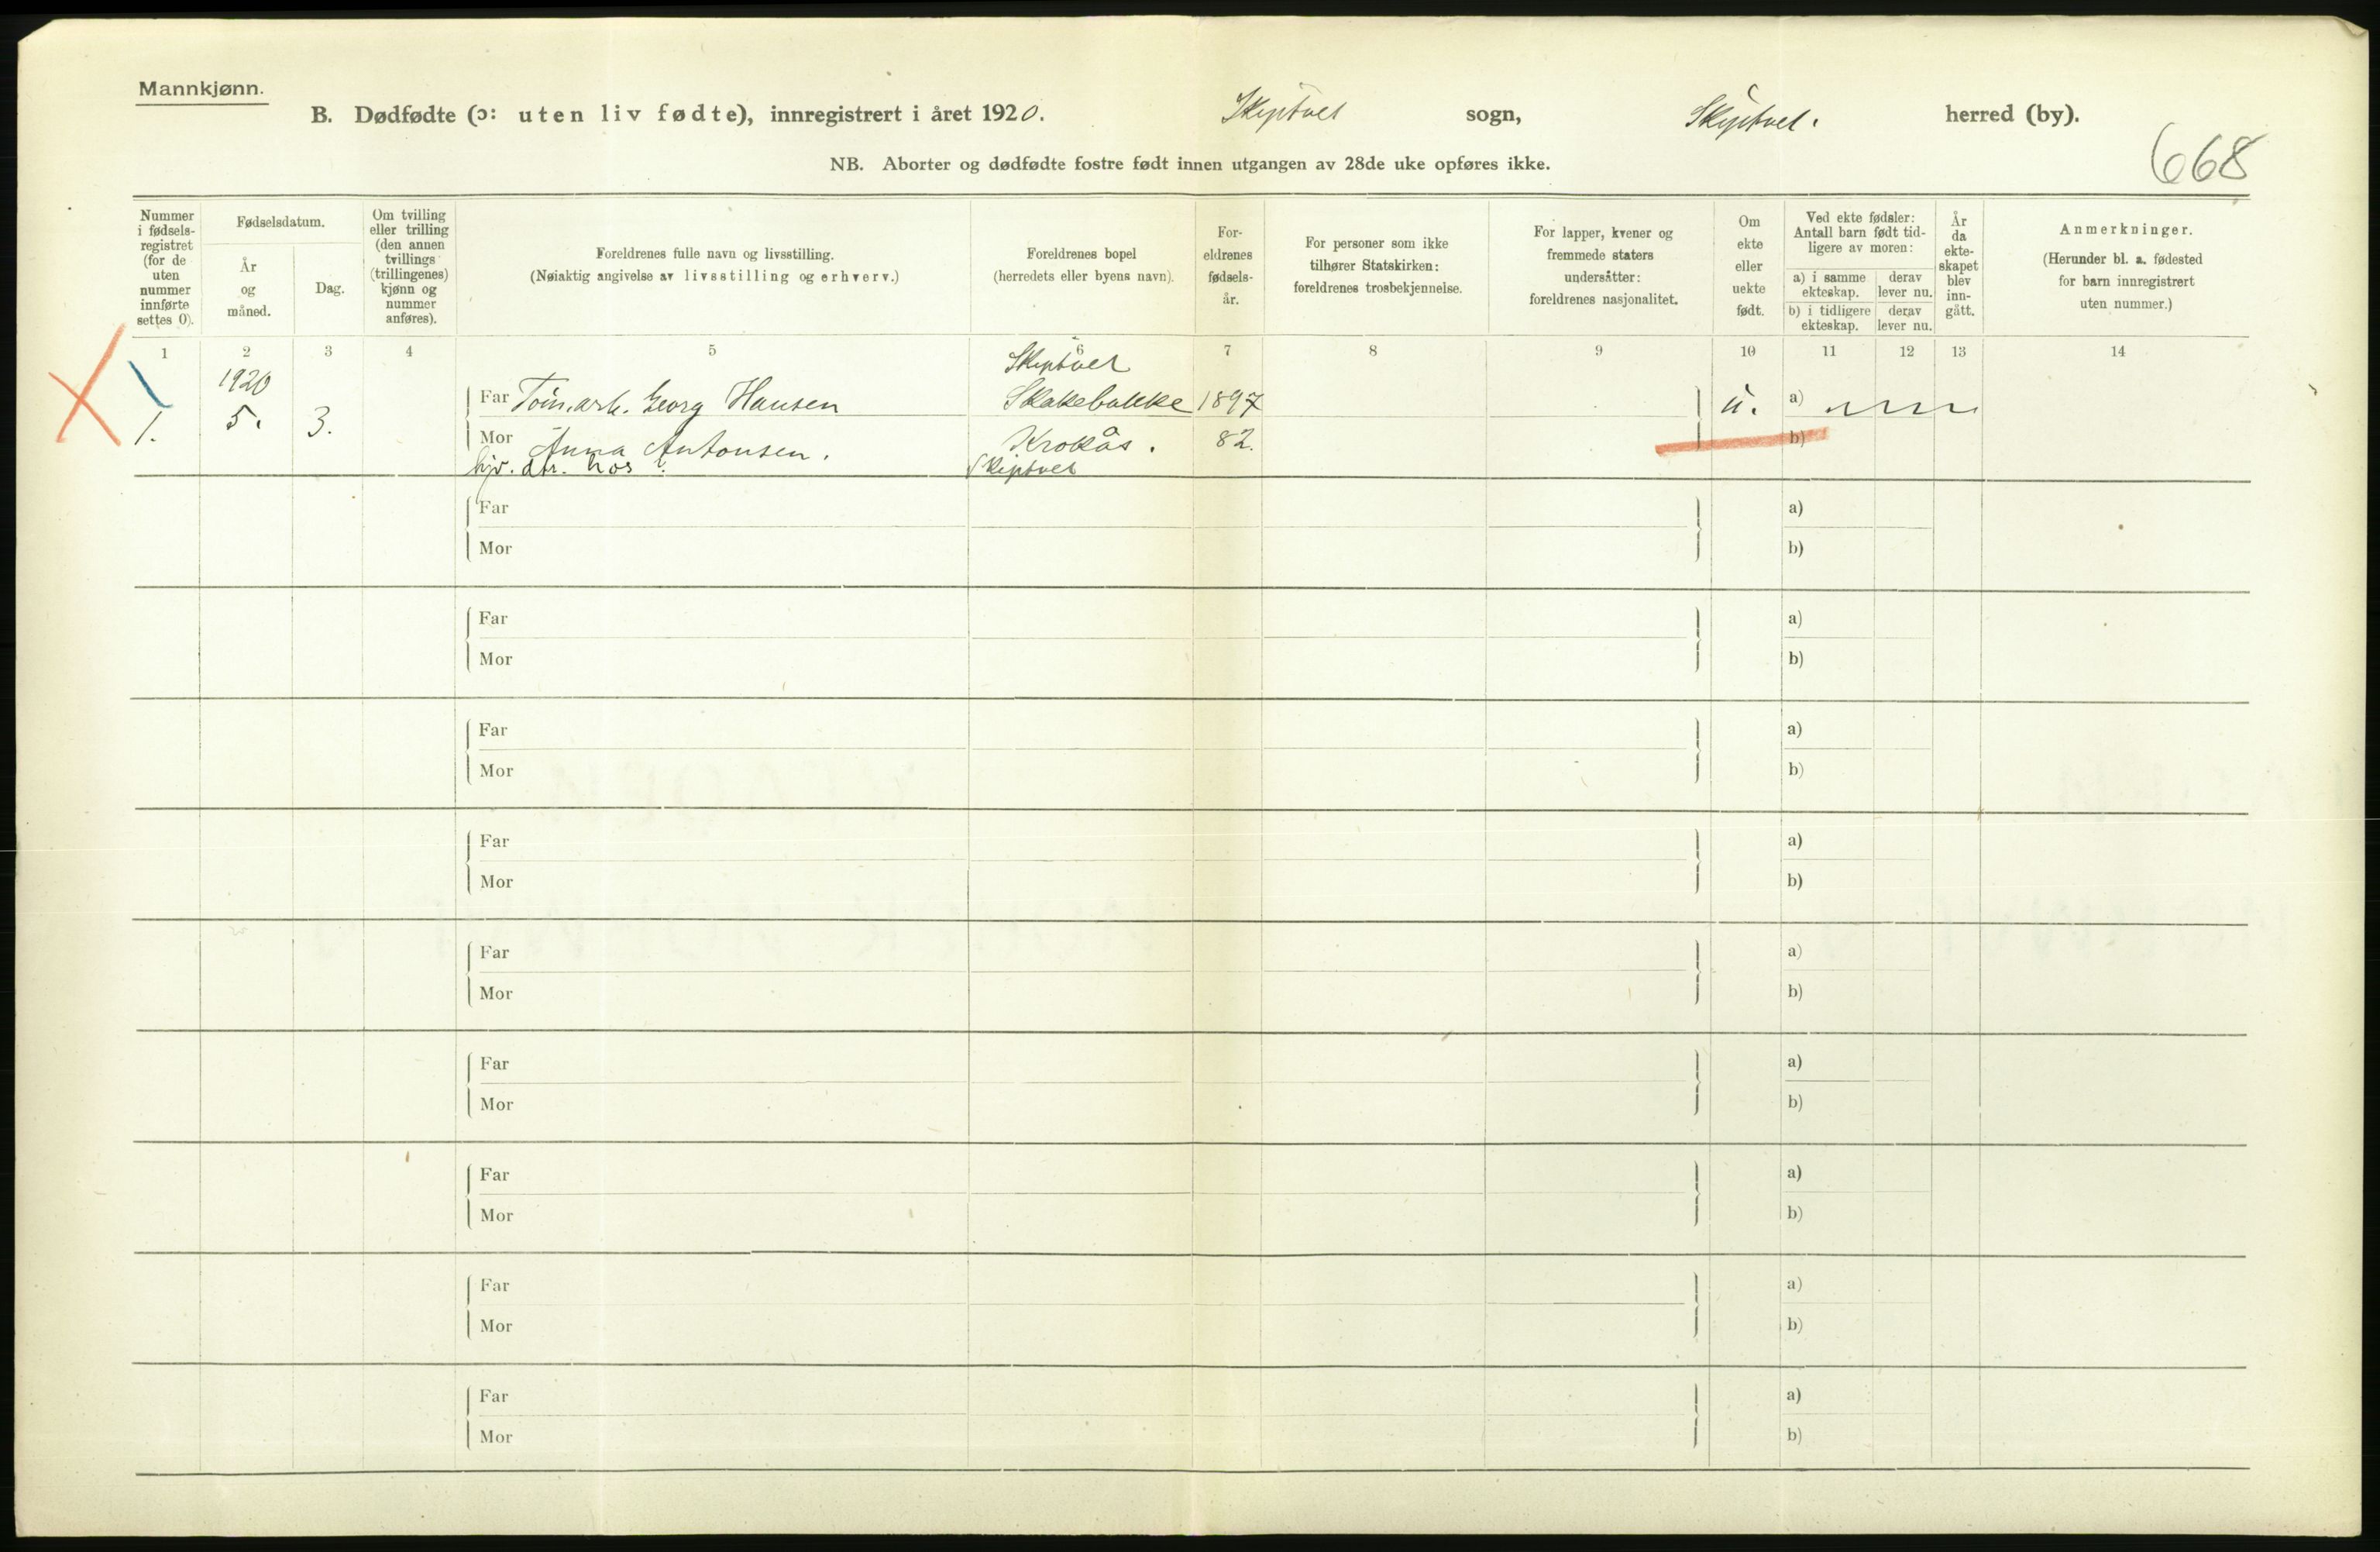 Mannkjønn.
B. Dødfødte (ɔ: uten liv fødte), innregistrert i året 1920. Skiptvet sogn, Skiptvet. herred (by).
668
NB. Aborter og dødfødte fostre født innen utgangen av 28de uke opføres ikke.
Nummer i fødsels-registret (for de uten nummer innførte settes 0).
Fødselsdatum.
År og måned.
Dag.
Om tvilling eller trilling (den annen tvillings (trillingenes) kjønn og nummer anføres).
Foreldrenes fulle navn og livsstilling.
(Nøiaktig angivelse av livsstilling og erhverv.)
Foreldrenes bopel
(herredets eller byens navn).
For-eldrenes fødsels-år.
For personer som ikke tilhører Statskirken: foreldrenes trosbekjennelse.
For lapper, kvener og fremmede staters undersåtter: foreldrenes nasjonalitet.
Om ekte eller uekte født.
Ved ekte fødsler: Antall barn født tid-ligere av moren:
a) i samme ekteskap.
derav lever nu.
b) i tidligere ekteskap.
derav lever nu.
År da ekte-skapet blev inn-gått.
Anmerkninger.
(Herunder bl. a. fødested for barn innregistrert uten nummer.)
1 2 3 4 5 6 7 8 9 10 11 12 13 14
1920 Skiptvet
Far Tøm.arb. Georg Hansen Skakebakke 1897 u. a)
1. 5. 3.
Mor Anna Antonsen. Krokås. 82. b)
hjv. dtr. hos Skiptvet
Far a)
Mor b)
Far a)
Mor b)
Far a)
Mor b)
Far a)
Mor b)
Far a)
Mor b)
Far a)
Mor b)
Far a)
Mor b)
Far a)
Mor b)
Far a)
Mor b)